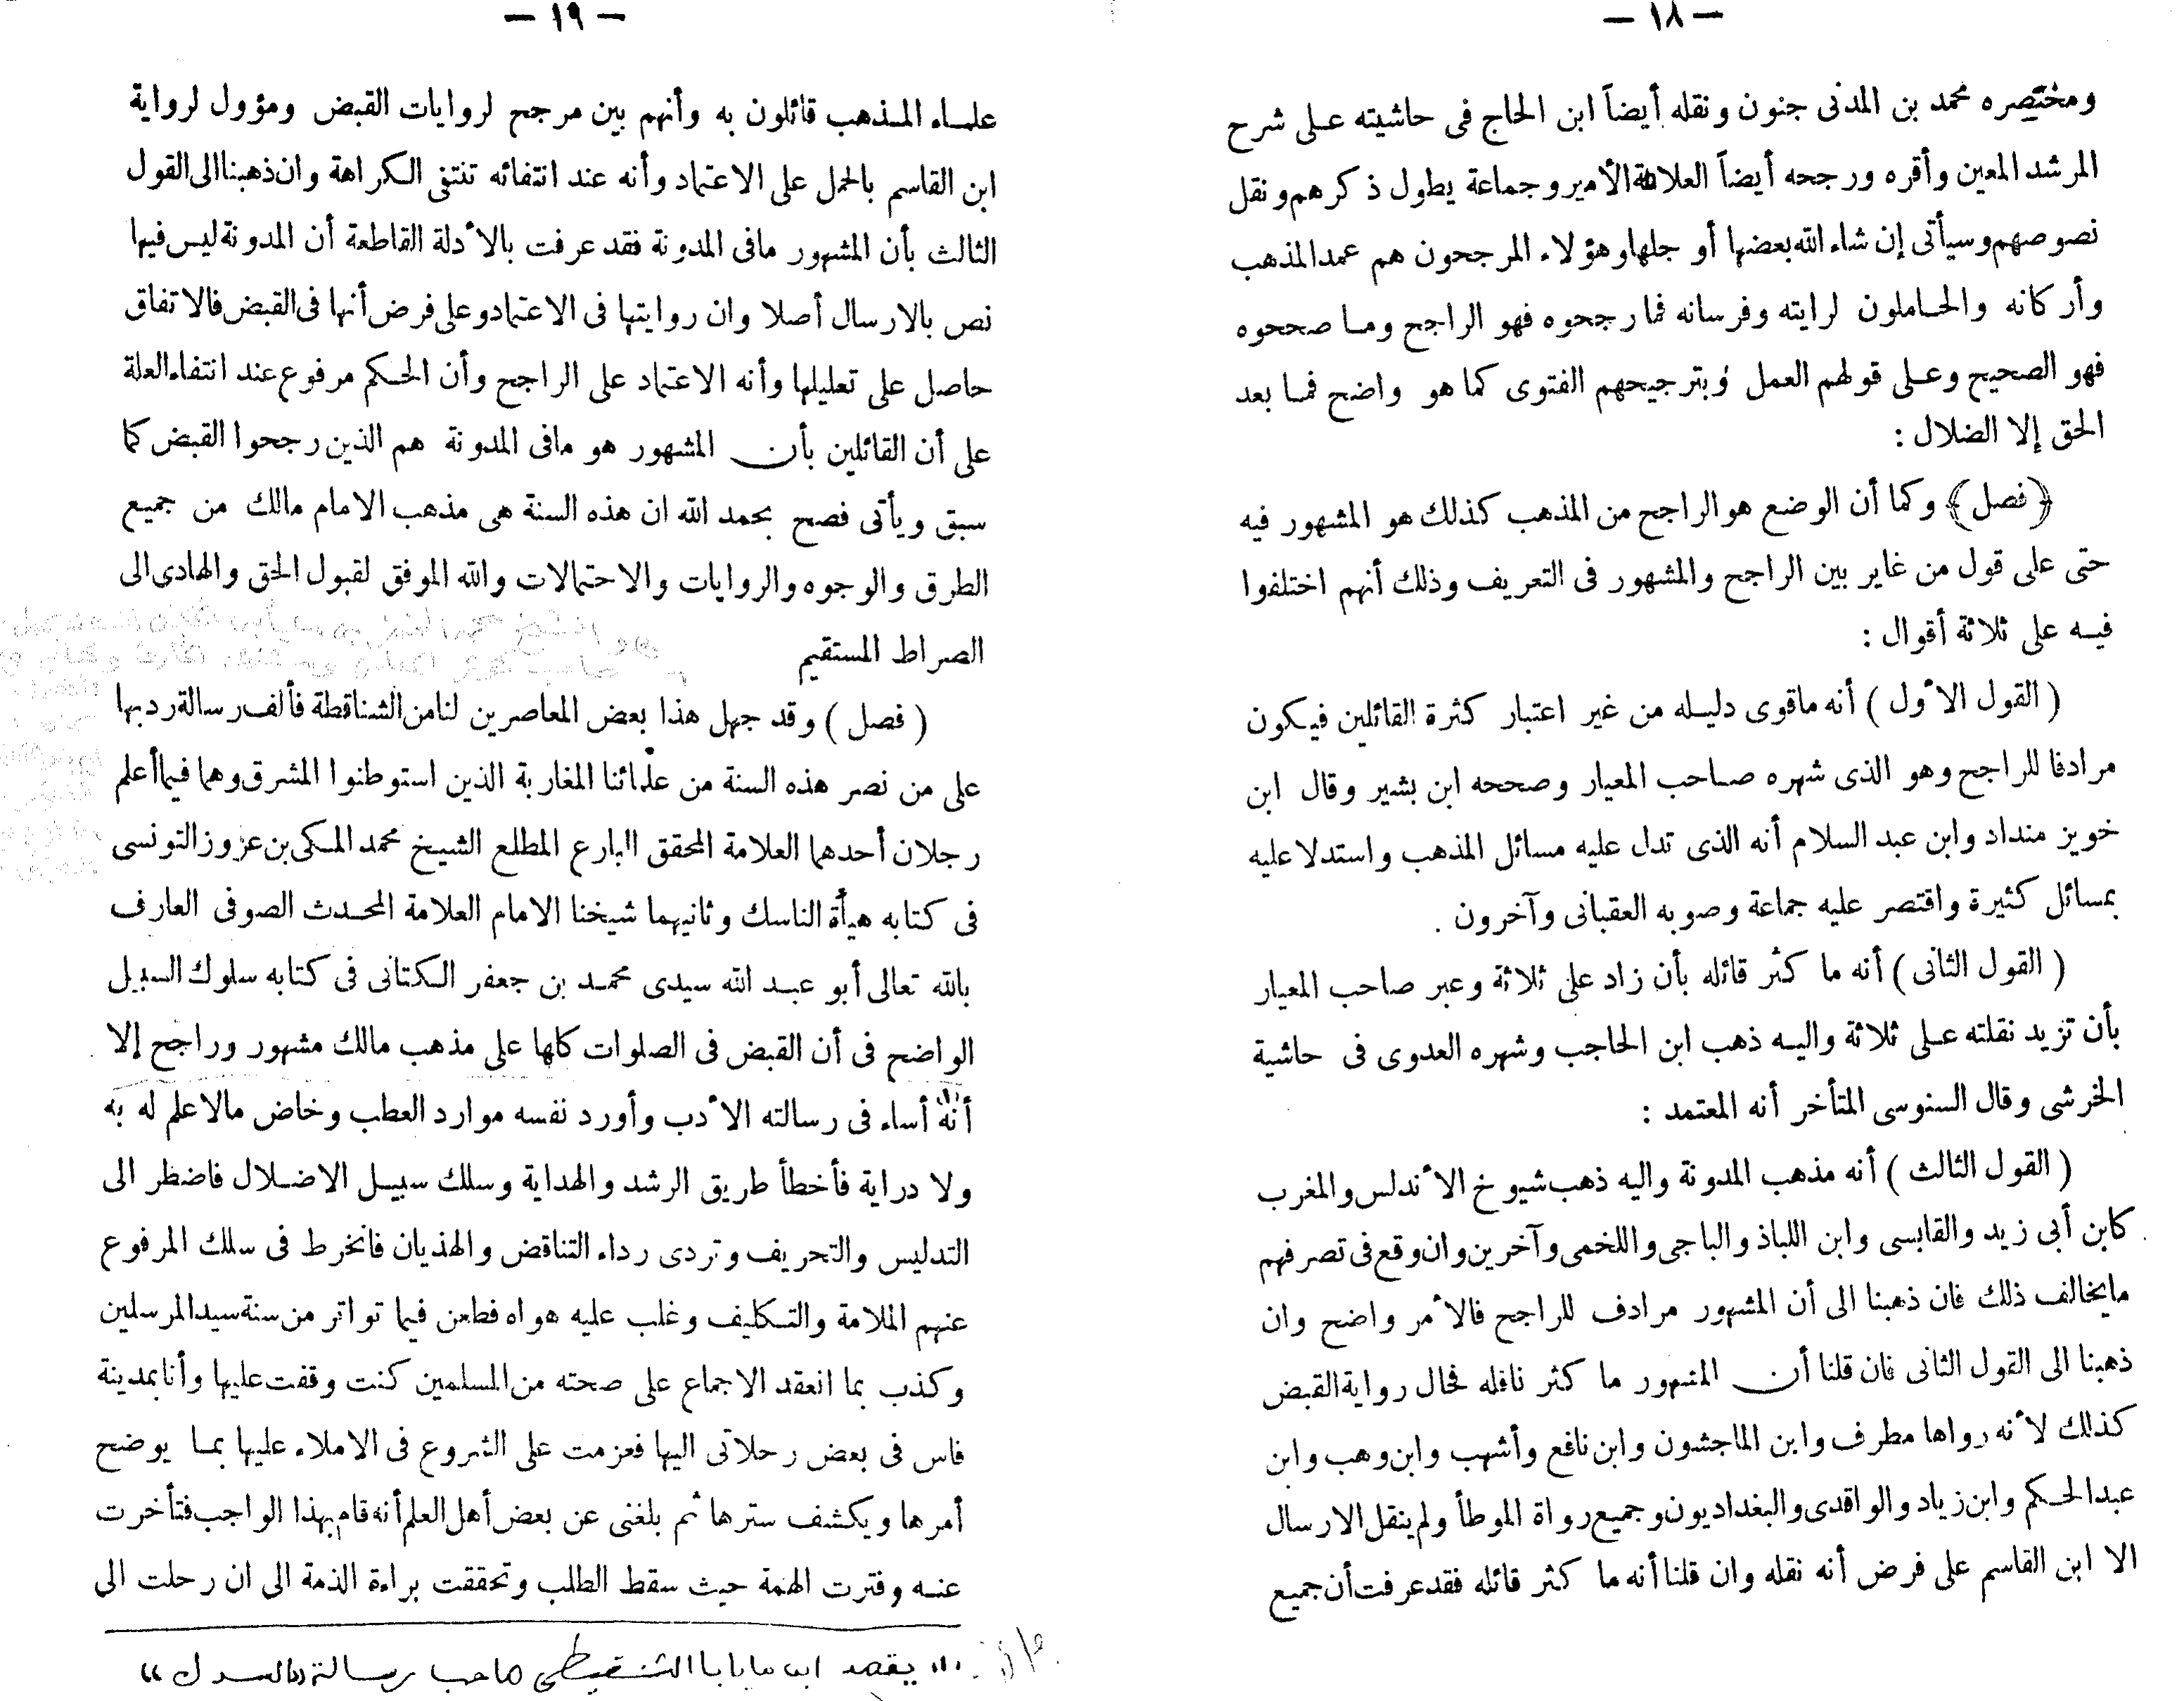 — ١٨ —
ومختصره محمد بن المدنى جنون ونقله أيضاً ابن الحاج فى حاشيته على شرح
المرشد المعين وأقره ورجحه أيضاً العلامة الأمير وجماعة يطول ذكرهم ونقل
نصوصهم وسيأتى إن شاء الله بعضها أو جلها وهؤلاء المرجحون هم عمد المذهب
وأركانه والحاملون لرايته وفرسانه فما رجحوه فهو الراجح وما صححوه
فهو الصحيح وعلى قولهم العمل وبترجيحهم الفتوى كما هو واضح فما بعد
الحق إلا الضلال :
﴿ فصل ﴾ وكما أن الوضع هو الراجح من المذهب كذلك هو المشهور فيه
حتى على قول من غاير بين الراجح والمشهور فى التعريف وذلك أنهم اختلفوا
فيه على ثلاثة أقوال :
( القول الأول ) أنه ماقوى دليله من غير اعتبار كثرة القائلين فيكون
مرادفا للراجح وهو الذى شهره صاحب المعيار وصححه ابن بشير وقال ابن
خويز منداد وابن عبد السلام أنه الذى تدل عليه مسائل المذهب واستدلا عليه
بمسائل كثيرة واقتصر عليه جماعة وصوبه العقبانى وآخرون .
( القول الثانى ) أنه ما كثر قائله بأن زاد على ثلاثة وعبر صاحب المعيار
بأن تزيد نقلته على ثلاثة واليه ذهب ابن الحاجب وشهره العدوى فى حاشية
الخرشى وقال السنوسى المتأخر أنه المعتمد :
( القول الثالث ) أنه مذهب المدونة واليه ذهب شيوخ الأندلس والمغرب
كابن أبى زيد والقابسى وابن اللباذ والباجى واللخمى وآخرين وان وقع فى تصرفهم
مايخالف ذلك فان ذهبنا الى أن المشهور مرادف للراجح فالأمر واضح وان
ذهبنا الى القول الثانى فان قلنا أن المشهور ما كثر ناقله فحال رواية القبض
كذلك لأنه رواها مطرف وابن الماجشون وابن نافع وأشهب وابن وهب وابن
عبد الحكم وابن زياد والواقدى والبغداديون وجميع رواة الموطأ ولم ينقل الارسال
الا ابن القاسم على فرض أنه نقله وان قلنا أنه ما كثر قائله فقد عرفت أن جميع
— ١٩ —
علماء المذهب قائلون به وأنهم بين مرجح لروايات القبض ومؤول لرواية
ابن القاسم بالحمل على الاعتماد وأنه عند انتفائه تنتفى الكراهة وان ذهبنا الى القول
الثالث بأن المشهور مافى المدونة فقد عرفت بالأدلة القاطعة أن المدونة ليس فيها
نص بالارسال أصلا وان روايتها فى الاعتماد وعلى فرض أنها فى القبض فالاتفاق
حاصل على تعليلها وأنه الاعتماد على الراجح وأن الحكم مرفوع عند انتفاء العلة
على أن القائلين بأن المشهور هو مافى المدونة هم الذين رجحوا القبض كما
سبق ويأتى فصح بحمد الله ان هذه السنة هى مذهب الامام مالك من جميع
الطرق والوجوه والروايات والاحتمالات والله الموفق لقبول الحق والهادى الى
الصراط المستقيم
( فصل ) وقد جهل هذا بعض المعاصرين لنا من الشناقطة فألف رسالة رد بها
على من نصر هذه السنة من علمائنا المغاربة الذين استوطنوا المشرق وهما فيما أعلم
رجلان أحدهما العلامة المحقق البارع المطلع الشيخ محمد المكى بن عزوز التونسى
فى كتابه هيأة الناسك وثانيهما شيخنا الامام العلامة المحدث الصوفى العارف
بالله تعالى أبو عبد الله سيدى محمد بن جعفر الكتانى فى كتابه سلوك السبيل
الواضح فى أن القبض فى الصلوات كلها على مذهب مالك مشهور وراجح إلا
أنه أساء فى رسالته الأدب وأورد نفسه موارد العطب وخاض مالا علم له به
ولا دراية فأخطأ طريق الرشد والهداية وسلك سبيل الاضلال فاضطر الى
التدليس والتحريف وتردى رداء التناقض والهذيان فانخرط فى سلك المرفوع
عنهم الملامة والتكليف وغلب عليه هواه فطعن فيما تواتر من سنة سيد المرسلين
وكذب بما انعقد الاجماع على صحته من المسلمين كنت وقفت عليها وأنا بمدينة
فاس فى بعض رحلاتى اليها فعزمت على الشروع فى الاملاء عليها بما يوضح
أمرها ويكشف سترها ثم بلغنى عن بعض أهل العلم أنه قام بهذا الواجب فتأخرت
عنه وفترت الهمة حيث سقط الطلب وتحققت براءة الذمة الى ان رحلت الى
(١) يقصد ابن مايابا الشنقيطى صاحب رسالة «السدل»